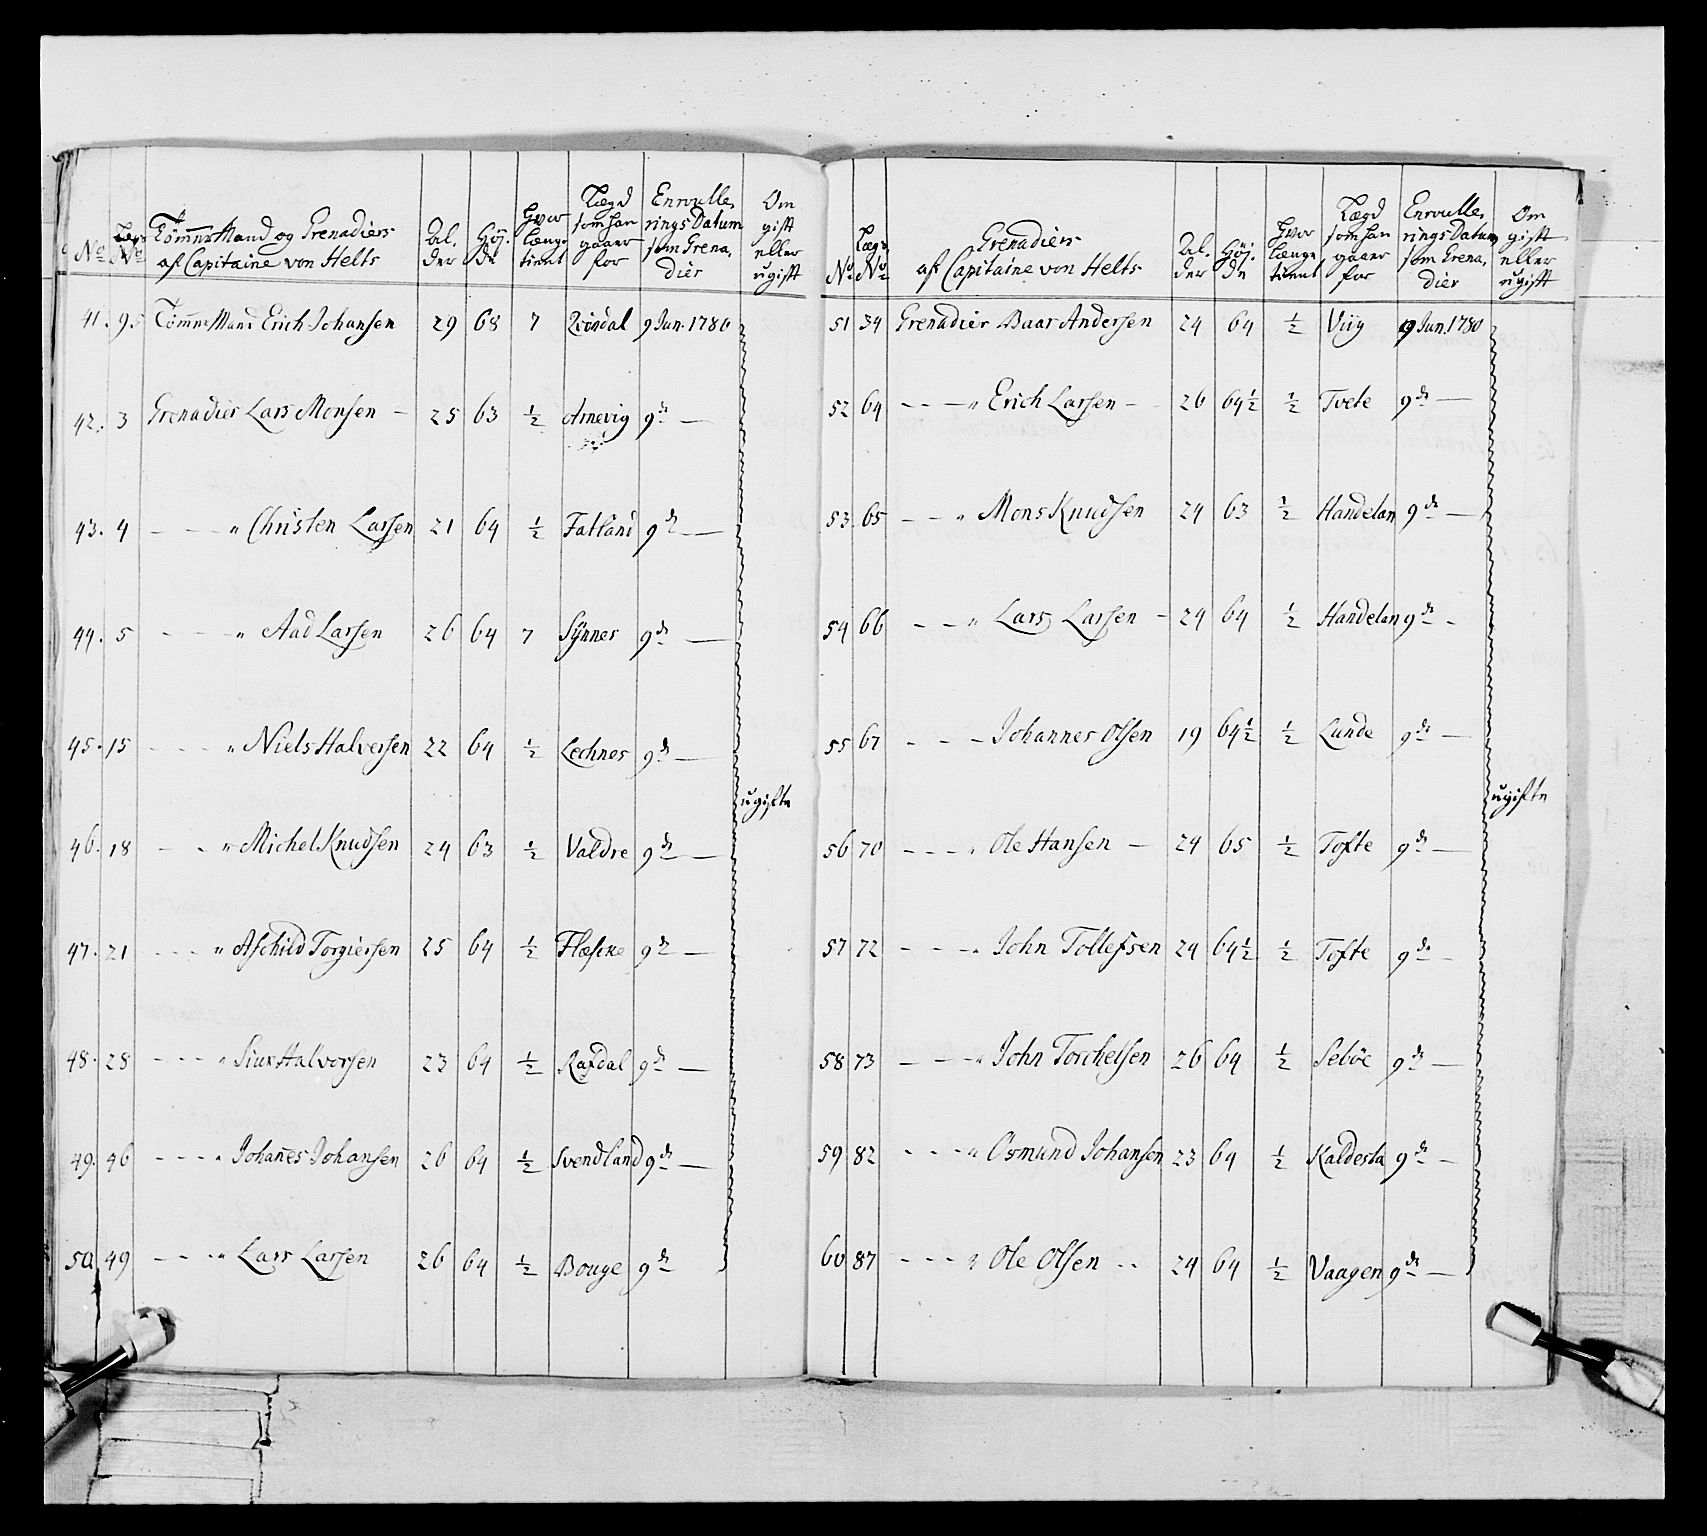 No Legs No Tømmermand og Grenadiers af Capitaine von Helts Alder Høyde Hvor længe tient Lægd som han gaaer for Enroullerings Datum som Grenadier Om gift eller ugift
41. 9. Tømmermand Erich Johansen 29 68 7 9 Jun. 1780
42. 3 Grenadier Lars Monsen - 25 63 ½ Arnevig 9 de —
43. 4 - - - " Christen Larsen 21 64 ½ Fatland 9 de —
44. 5 - - - " Aad Larsen 26 64 7 Synnes 9 de —
45. 15 - - - " Niels Halversen 22 64 ½ Lechnes 9 de —
ugifte
46. 18 - - " Michel Knudsen 24 63 ½ Valdre 9 de —
47. 21 - - - " Aschild Torgiersen 25 64 ½ Flæske 9 de —
48. 28 - - - " Siur Halvorsen 23 64 ½ Rafdal 9 de —
49. 46 - - - " Johanes Johansen 26 64 ½ Svendland 9 de —
50. 49 - - - " Lars Larsen 26 64 ½ Bouge 9 de
No Legs No Grenadiers af Capitaine von Helts Alder Høyde Hvor længe tient Lægd som han gaaer for Enroullerings Datum som Grenadier Om gift eller ugift
51 34 Grenadier Baar Andersen 24 64 ½ Viig 9 Jun. 1780
52 64 - - - " Erich Larsen - 26 64½ ½ Tvete 9 de —
53. 65 - - " Mons Knudsen 24 63 ½ Handelan 9 de —
54 66 - - - " Lars Larsen - 24 64 ½ Handelan 9 de -
55 67 - - - Johannes Olsen 19 64½ ½ Lunde 9 de —
ugifte
56 70 - - - " Ole Hansen — 24 65 ½ Tofte 9 de —
57 72 - - - " John Tollefsen 24 64½ ½ Tofte 9 de -
58 73 - - - " John Torchelsen 26 64 ½ Sebøe 9 de —
59 82 - - - " Osmund Johansen 23 64 ½ Kaldesta 9 de —
60 87 - - - " Ole Olsen - - 24 64 ½ Vaagen 9 de —